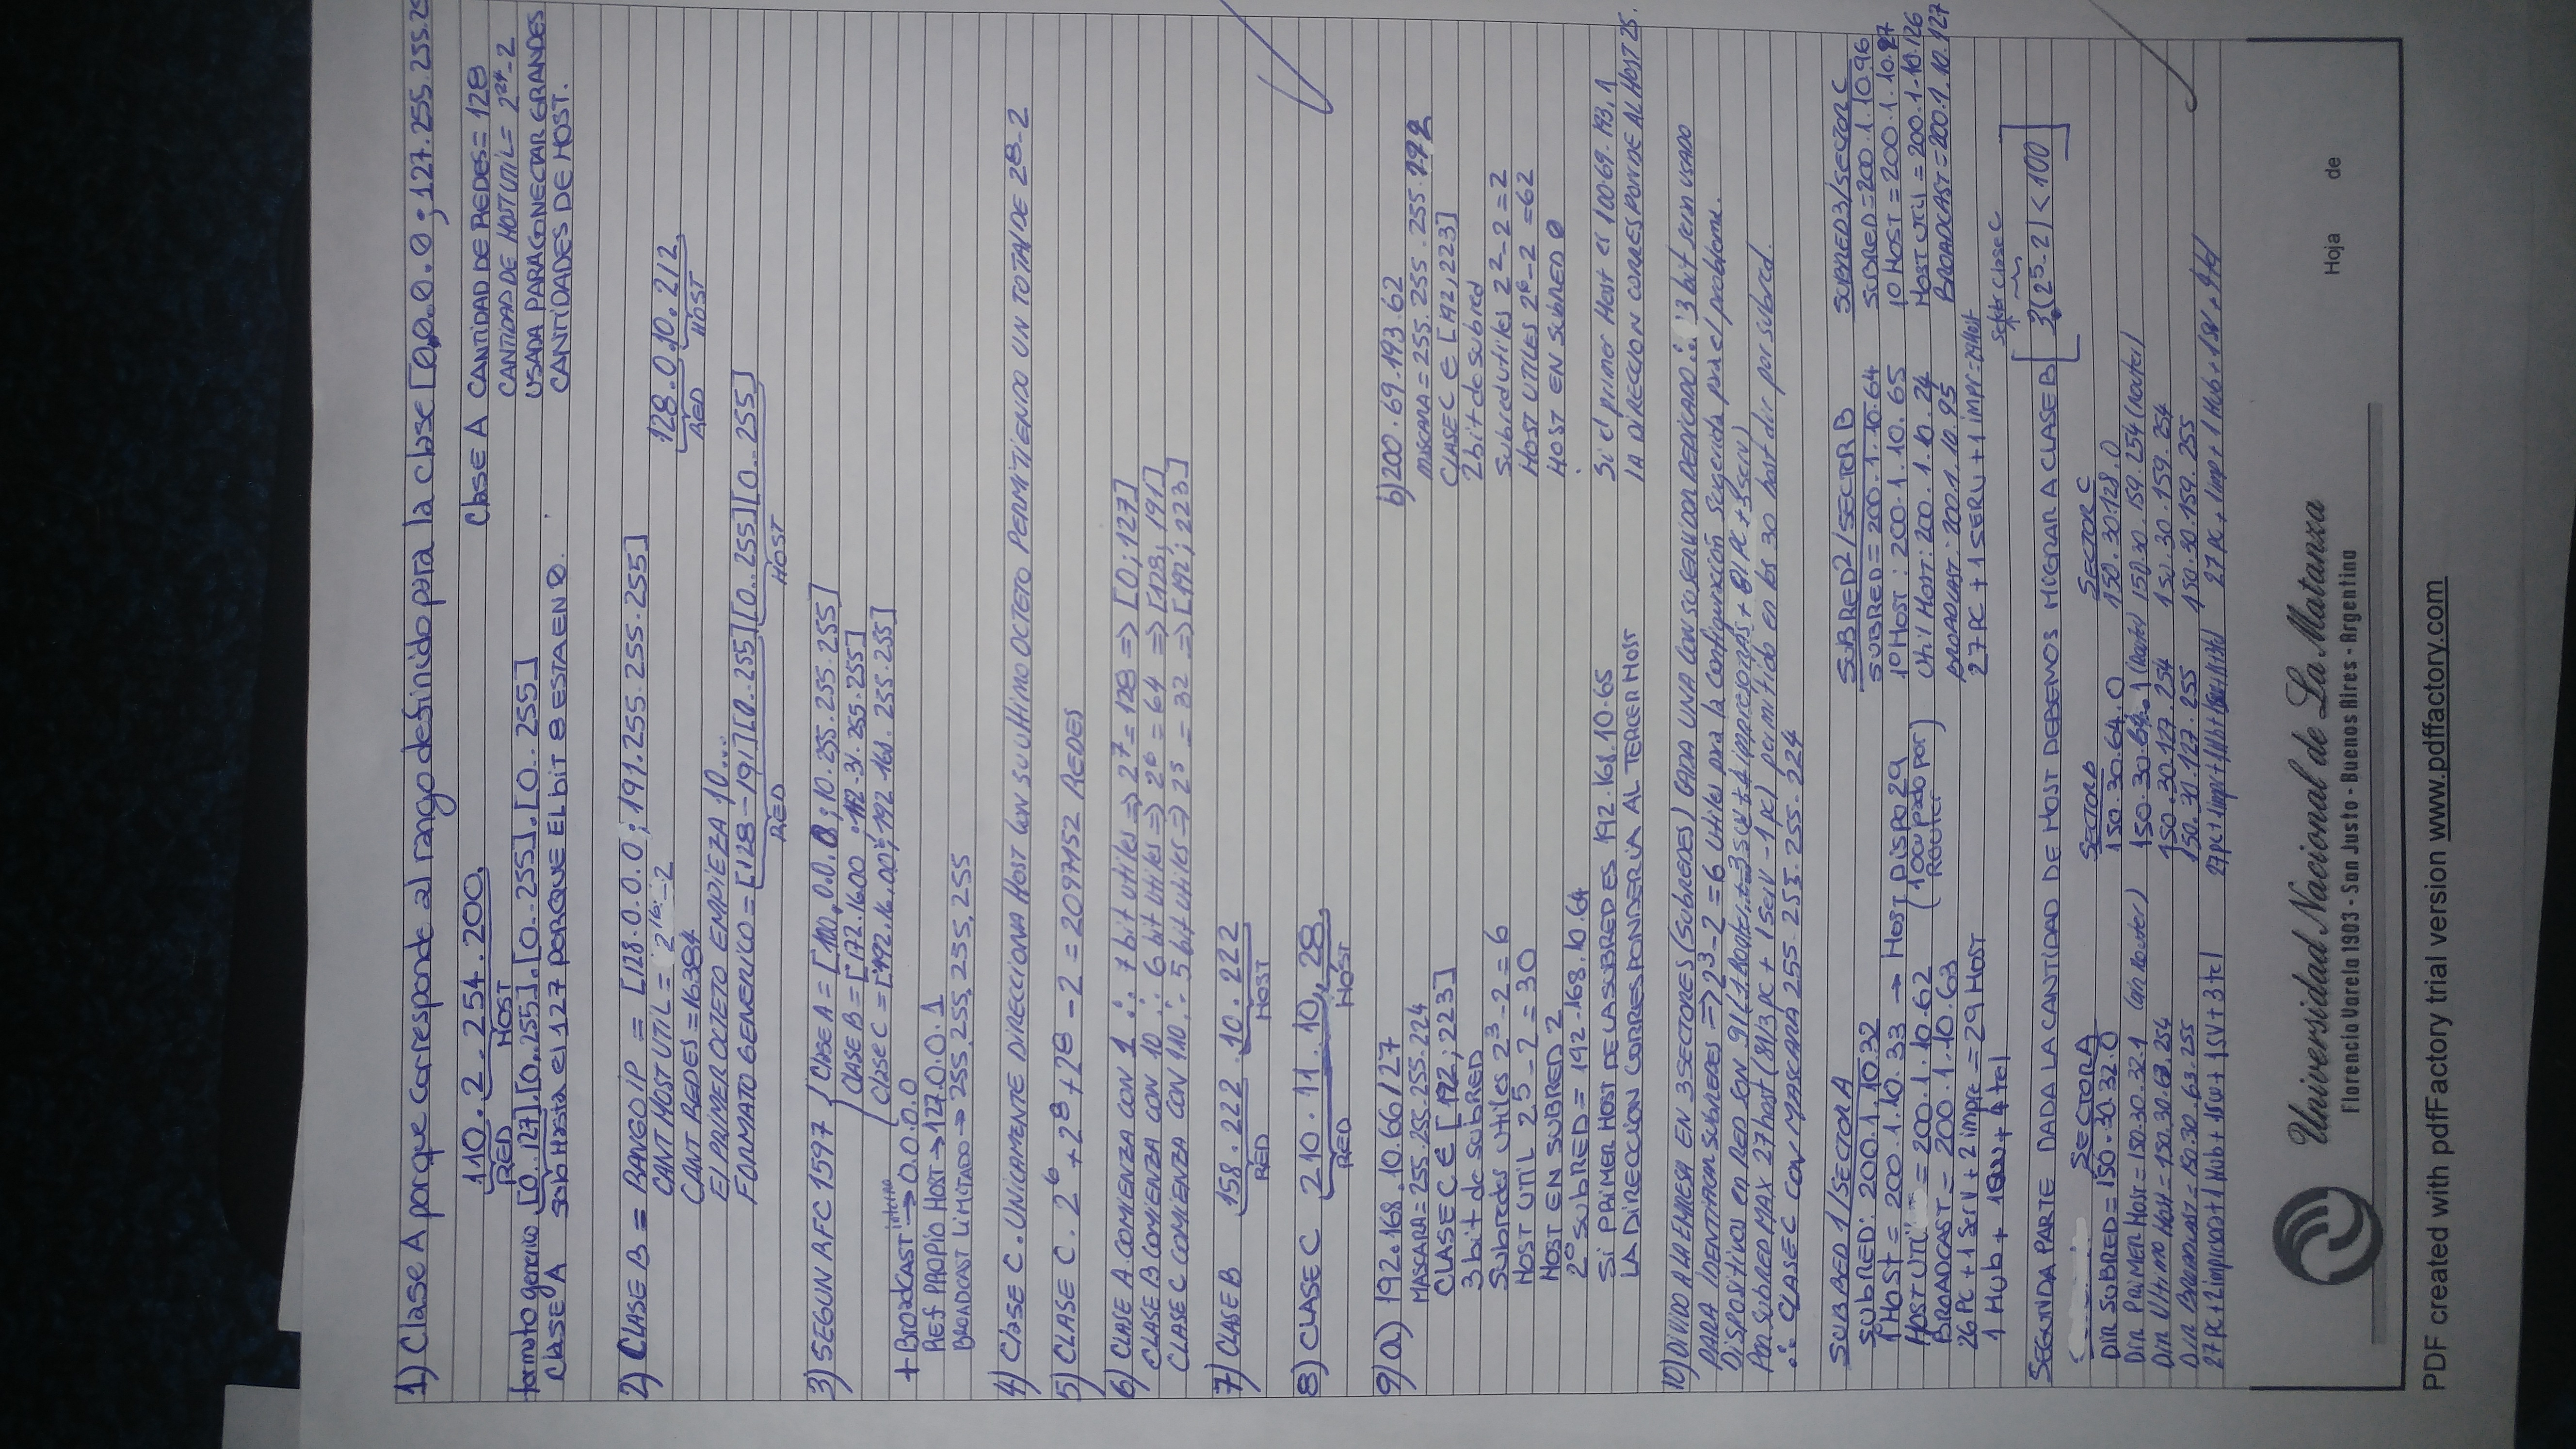 1) Clase A porque corresponde al rango definido para la clase [0.0.0.0 ; 127.255.255.25
110.2.254.200.
RED HOST
formato generico [0..127].[0..255].[0..255].[0..255]
Clase A solo Hasta el 127 PORQUE EL bit 8 ESTA EN 0.
Clase A CANTIDAD DE REDES = 128
CANTIDAD DE HOST UTIL = 2^24-2
USADA PARA CONECTAR GRANDES
CANTIDADES DE HOST.
2) CLASE B = RANGO IP = [128.0.0.0 ; 191.255.255.255]
CANT HOST UTIL = 2^16-2
CANT REDES = 16384
El PRIMER OCTETO EMPIEZA 10...
FORMATO GENERICO = [128-191][0..255][0..255][0..255]
RED HOST
128.0.10.212.
RED HOST
3) SEGUN RFC 1597 { Clase A = [100.0.0.0 ; 10.255.255.255]
CLASE B = [172.16.00 ; 172.31.255.255]
Clase C = [192.16.00 ; 192.168.255.255]
+ BroadCAST interno → 0.0.0.0
Ref PROPIO HOST → 127.0.0.1
BROADCAST LIMITADO → 255.255.255.255
4) Clase C. UNICAMENTE DIRECCIONA HOST CON SU ultimo OCTETO PERMITIENDO UN TOTAL DE 2^8-2
5) CLASE C. 2^6+2^8+2^8-2 = 2097152 REDES
6) CLASE A COMIENZA CON 1 ∴ 7 bit utiles => 2^7 = 128 => [0;127]
CLASE B COMIENZA CON 10 ∴ 6 bit utiles => 2^6 = 64 => [128; 191]
CLASE C COMIENZA CON 110 ∴ 5 bit utiles => 2^5 = 32 => [192; 223]
7) CLASE B 158.222.10.222
RED HOST
8) CLASE C 210.11.10.28.
RED HOST
9) a) 192.168.10.66/27
MASCARA = 255.255.255.224
CLASE C ∈ [192; 223]
3 bit de SUBRED
Subredes utiles 2^3-2 = 6
HOST UTIL 2^5-2 = 30
HOST EN SUBRED 2
2° SUBRED = 192.168.10.64
Si PRIMER HOST DE LA SUBRED ES 192.168.10.65
LA DIRECCION CORRESPONDERIA AL TERCER HOST
b) 200.69.193.62
MASCARA = 255.255.255.192
CLASE C ∈ [192, 223]
2 bit de subred
Subred utiles 2^2-2 = 2
HOST UTILES 2^6-2 = 62
HOST EN SUBRED 0
Si el primer Host es 100.69.193.1
LA DIRECCION CORRESPONDE AL HOST 25.
10) DIVIDO A LA EMPRESA EN 3 SECTORES (SUBREDES) CADA UNA CON SU SERVIDOR DEDICADO ∴ 3 bit seran USADO
PARA IDENTIFICAR SUBREDES => 2^3-2 = 6 utiles para la Configuración Sugerida para el problema.
Dispositivos en RED SON 91 (1 Router + 3 SW + 4 impresoras + 81 PC + 3 serv)
Por SUBRED MAX 27 host (81/3 pc + 1 Serv - 1 pc) permitido en los 30 host dir por subred.
∴ CLASE C CON MASCARA 255.255.255.224
SUBRED 1/SECTOR A
SUBRED: 200.1.10.32
1° HOST = 200.1.10.33 → HOST DISPO 29
HOST UTIL = 200.1.10.62 (1 ocupado por Router)
BROADCAST = 200.1.10.63
26 PC + 1 Serv + 2 impre = 29 HOST
1 Hub + 1SW + 4 tel
SUBRED2/SECTOR B
SUBRED = 200.1.10.64
1° HOST : 200.1.10.65
Util HOST: 200.1.10.24
BROADCAST: 200.1.10.95
27 PC + 1 SERV + 1 impr = 29 Host
SUBRED3/SECTOR C
SUBRED = 200.1.10.96
1° HOST = 200.1.10.97
HOST Util = 200.1.10.126
BROADCAST = 200.1.10.127
SEGUNDA PARTE DADA LA CANTIDAD DE HOST DEBEMOS MIGRAR A CLASE B [3(2^5-2) < 100]
Sector Clase C
SECTOR A SECTOR B SECTOR C
DIR SUBRED = 150.30.32.0 150.30.64.0 150.30.128.0
DIR PRIMER HOST = 150.30.32.1 (en Router) 150.30.64.1 (Router) 150.30.159.254 (Router)
DIR Ultimo Host = 150.30.63.254 150.30.127.254 150.30.159.254
DIR BROADCAST = 150.30.63.255 150.30.127.255 150.30.159.255
27 PC + 2 impresora + 1 Hub + 1 SW + 1 SV + 3 tel 27 pc + 1 impr + 1 Hub + 27 PC + 1 imp + 1 Hub + 1 SV + 4 tel
Universidad Nacional de La Matanza
Florencio Varela 1903 - San Justo - Buenos Aires - Argentina
Hoja de
PDF created with pdfFactory trial version www.pdffactory.com